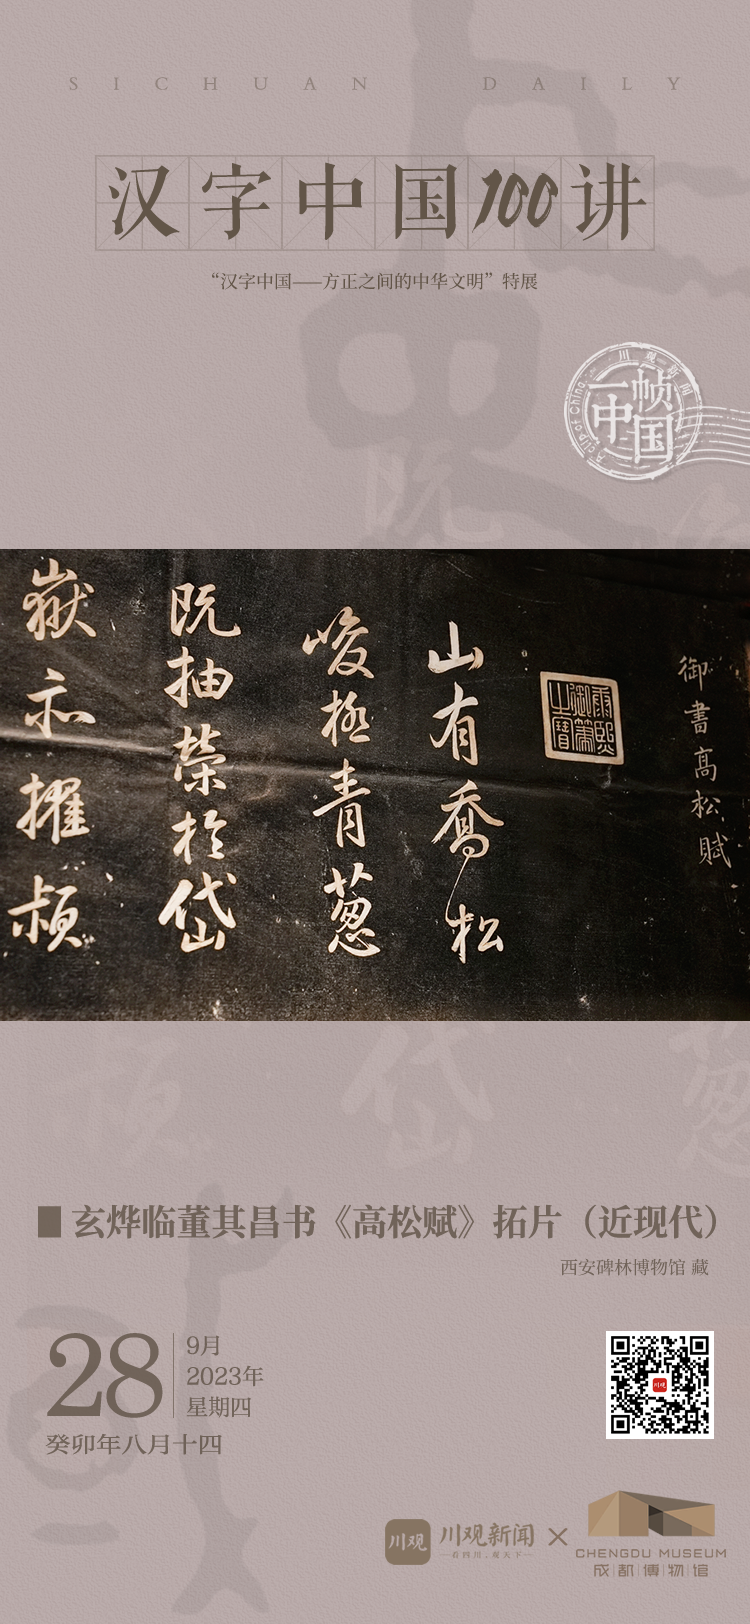 SICHUAN DAILY
汉字中国100讲
“汉字中国——方正之间的中华文明”特展
川观新闻
一帧
中国
A clip of China
御書高松賦
康熙
御筆
之寶
山有喬松
峻極青蔥
既抽榮於岱
嶽亦擢
玄烨临董其昌书《高松赋》拓片（近现代）
西安碑林博物馆 藏
28
9月
2023年
星期四
癸卯年八月十四
川观
川观新闻
—看四川，观天下—
×
CHENGDU MUSEUM
成都博物馆